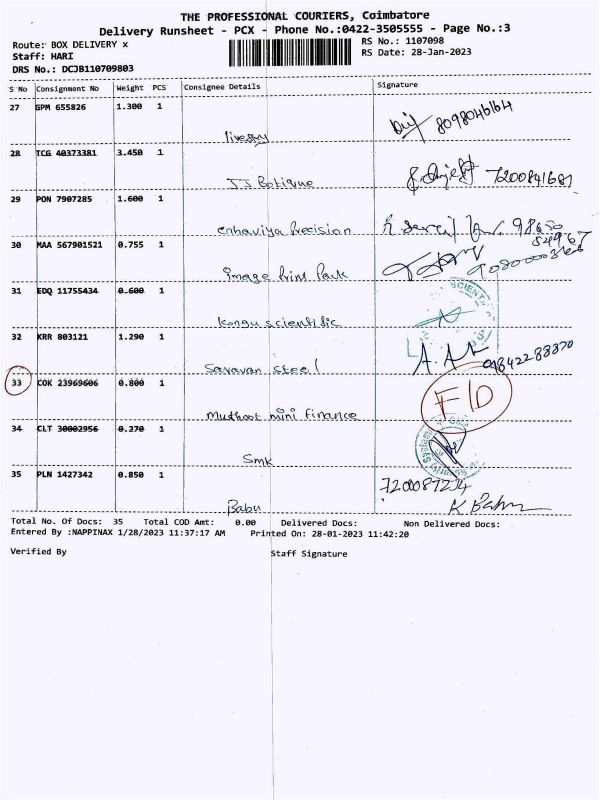 THE PROFESSIONAL COURIERS, Coimbatore
Delivery Runsheet - PCX - Phone No.:0422-3505555 - Page No.:3
Route: BOX DELIVERY x
RS No.: 1107098
Staff: HARI
RS Date: 28-Jan-2023
DRS No.: DCJB110709803
S No Consignment No Weight PCS Consignee Details Signature
27 GPM 655826 1.300 1
8098046164
28 TCG 40373381 3.450 1
JJ Botique 7200841681
29 PON 7907285 1.600 1
enhaviya Precision 98650
54967
30 MAA 567901521 0.755 1
image Print Park
31 EDQ 11755434 0.600 1
SCIENT
Kongu scientific
32 KRR 803121 1.290 1
Saravan steel 9842288870
33 COK 23969606 0.800 1
F/D
muthoot mini finance
34 CLT 30002956 0.270 1
Smk
35 PLN 1427342 0.850 1
Babu K Babu
Total No. Of Docs: 35 Total COD Amt: 0.00 Delivered Docs: Non Delivered Docs:
Entered By :NAPPINAX 1/28/2023 11:37:17 AM Printed On: 28-01-2023 11:42:20
Verified By Staff Signature